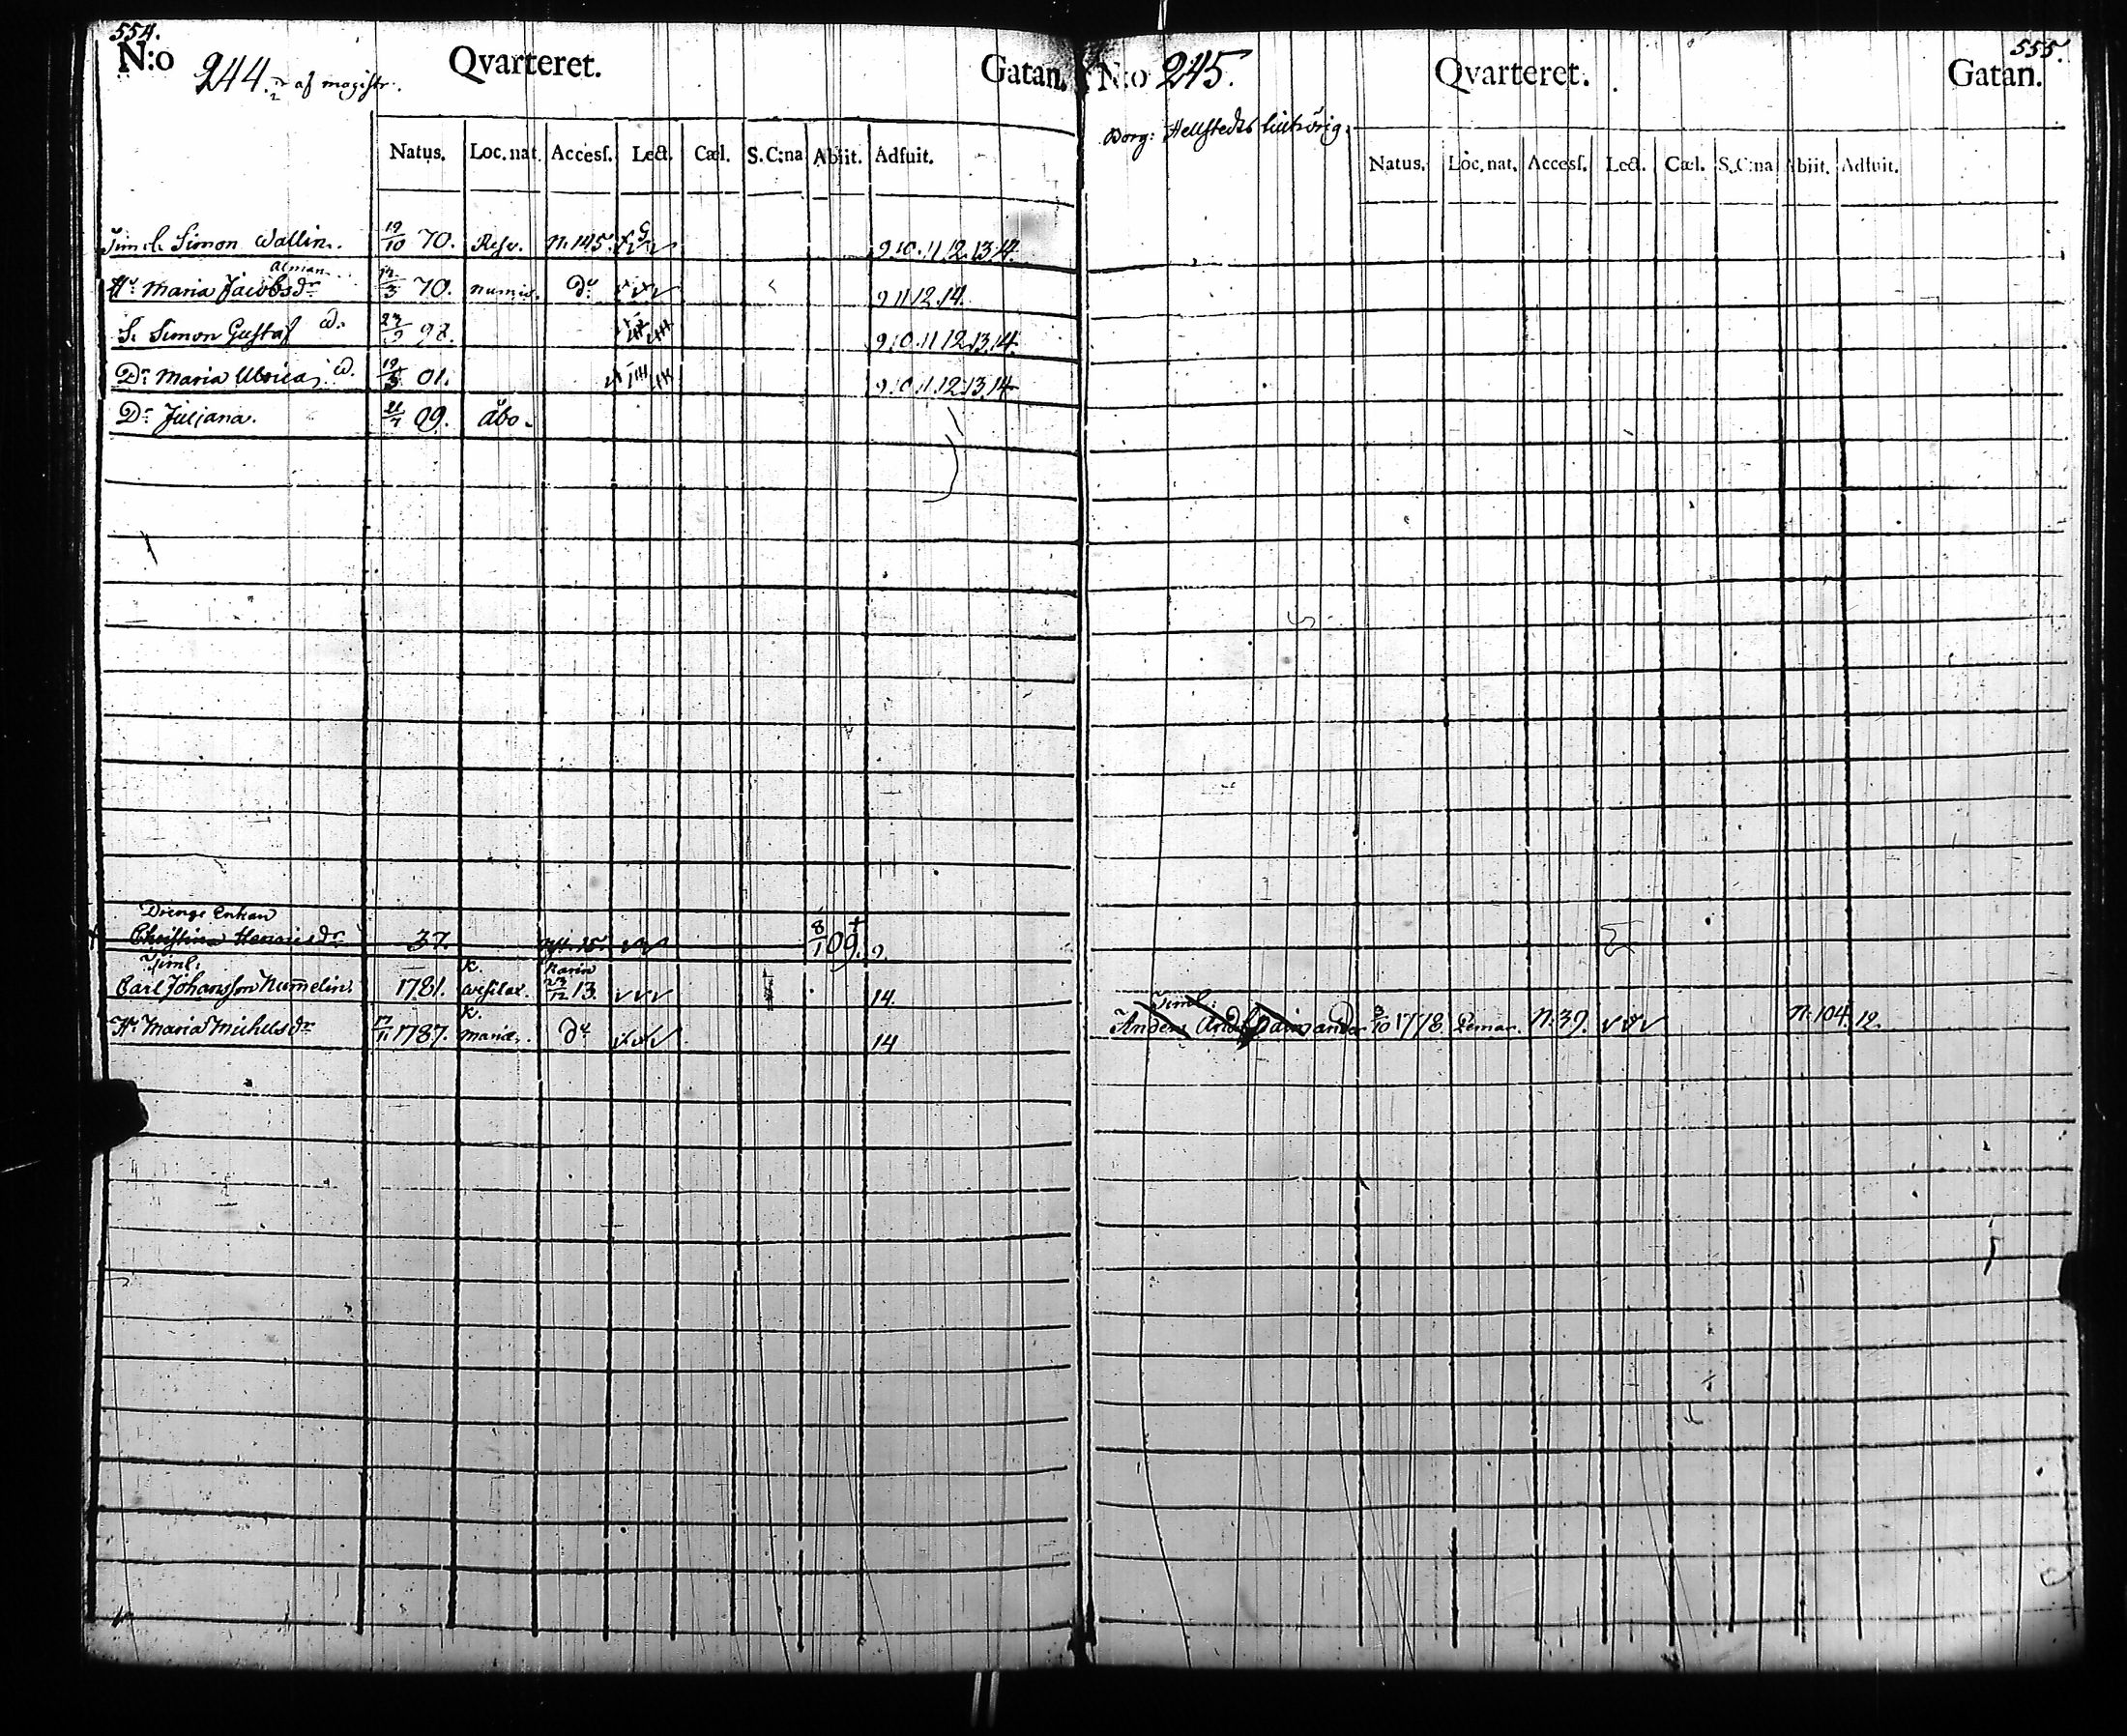 554.
N:o 244. af magistr. Qvarteret. Gatan.
Natus. Loc. nat. Access. Lect. Cæl. S. C:na Abiit. Adfuit.
Simon Wallin. 19/10 70. Resv. N. 145. 9.10.11.12.13.14.
Alman
Hu Maria Jacobsdr 70. numis. do 9 11 12 14.
S. Simon Gustaf W. 23/9 98. 9.10.11.12.13.14.
Dr Maria Ulrica W. 19/3 01. 9.10.11.12.13.14
Dr Juliana. 09. Åbo.
Drengs Enkan
Christina Henricsdr 37. 8/1 09. † 9.
Timl. K. Karin
Carl Johansson Numelin 1781. 23/12 13. 14.
K.
Hu Maria Michelsdr 1787. Mariæ. do 14
555.
N:o 245. Qvarteret. Gatan.
Borg: Hellstedts tillhörig.
Natus. Loc. nat. Access. Lect. Cæl. S. C:na Abiit. Adfuit.
Timl:
Anders 3/10 1778. Pemar. N. 39. N. 104. 12.